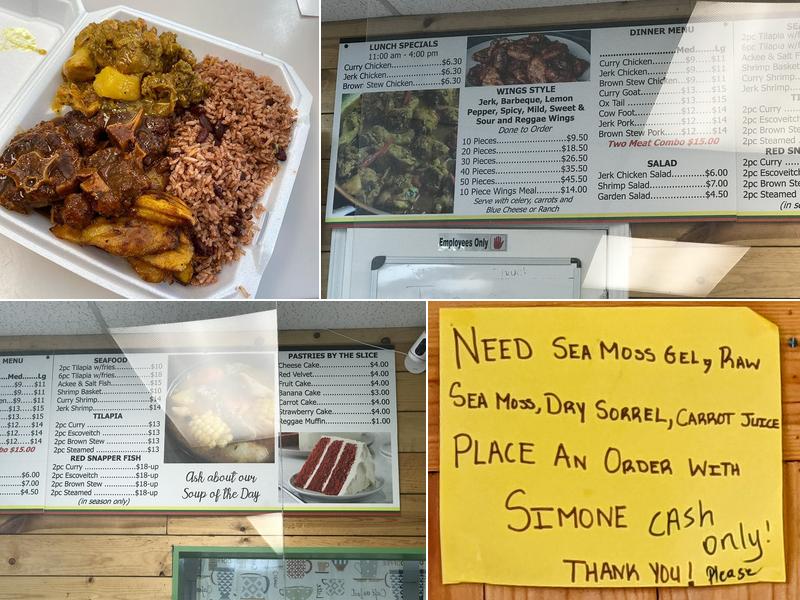 LUNCH SPECIALS
11:00 am - 4:00 pm
Curry Chicken.....................$6.30
Jerk Chicken.......................$6.30
Brown Stew Chicken............$6.30
WINGS STYLE
Jerk, Barbeque, Lemon
Pepper, Spicy, Mild, Sweet &
Sour and Reggae Wings
Done to Order
10 Pieces...........................$9.50
20 Pieces.........................$18.50
30 Pieces.........................$26.50
40 Pieces.........................$35.50
50 Pieces.........................$45.50
10 Piece Wings Meal..........$14.00
Serve with celery, carrots and
Blue Cheese or Ranch
DINNER MENU
Med......Lg
Curry Chicken................$9......$11
Jerk Chicken..................$9......$11
Brown Stew Chicken.......$9......$11
Curry Goat...................$13.....$15
Ox Tail........................$13.....$15
Cow Foot.....................$12.....$14
Jerk Pork.....................$12.....$14
Brown Stew Pork...........$12.....$14
Two Meat Combo $15.00
SALAD
Jerk Chicken Salad............$6.00
Shrimp Salad...................$7.00
Garden Salad...................$4.50
2pc Tilapia w/
6pc Tilapia w/
Ackee & Salt
Shrimp Basket
Curry Shrimp
Jerk Shrimp
2pc Curry
2pc Escoveitch
2pc Brown Stew
2pc Steamed
RED SN
2pc Curry
2pc Escoveitch
2pc Brown Stew
2pc Steamed
(in s
Employees Only
MENU
Med......Lg
$9......$11
$9......$11
$9......$11
$13.....$15
$13.....$15
$12.....$14
$12.....$14
$12.....$14
bo $15.00
$6.00
$7.00
$4.50
SEAFOOD
2pc Tilapia w/fries..............$10
6pc Tilapia w/fries..............$18
Ackee & Salt Fish...............$15
Shrimp Basket...................$10
Curry Shrimp.....................$14
Jerk Shrimp.......................$14
TILAPIA
2pc Curry.........................$13
2pc Escoveitch..................$13
2pc Brown Stew................$13
2pc Steamed....................$13
RED SNAPPER FISH
2pc Curry....................$18-up
2pc Escoveitch.............$18-up
2pc Brown Stew...........$18-up
2pc Steamed...............$18-up
(in season only)
Ask about our
Soup of the Day
PASTRIES BY THE SLICE
Cheese Cake.....................$4.00
Red Velvet........................$4.00
Fruit Cake.........................$4.00
Banana Cake.....................$3.00
Carrot Cake......................$4.00
Strawberry Cake................$4.00
Reggae Muffin...................$1.00
NEED SEA MOSS GEL, RAW
SEA MOSS, DRY SORREL, CARROT JUICE
PLACE AN ORDER WITH
SIMONE CASH
only!
THANK YOU! Please